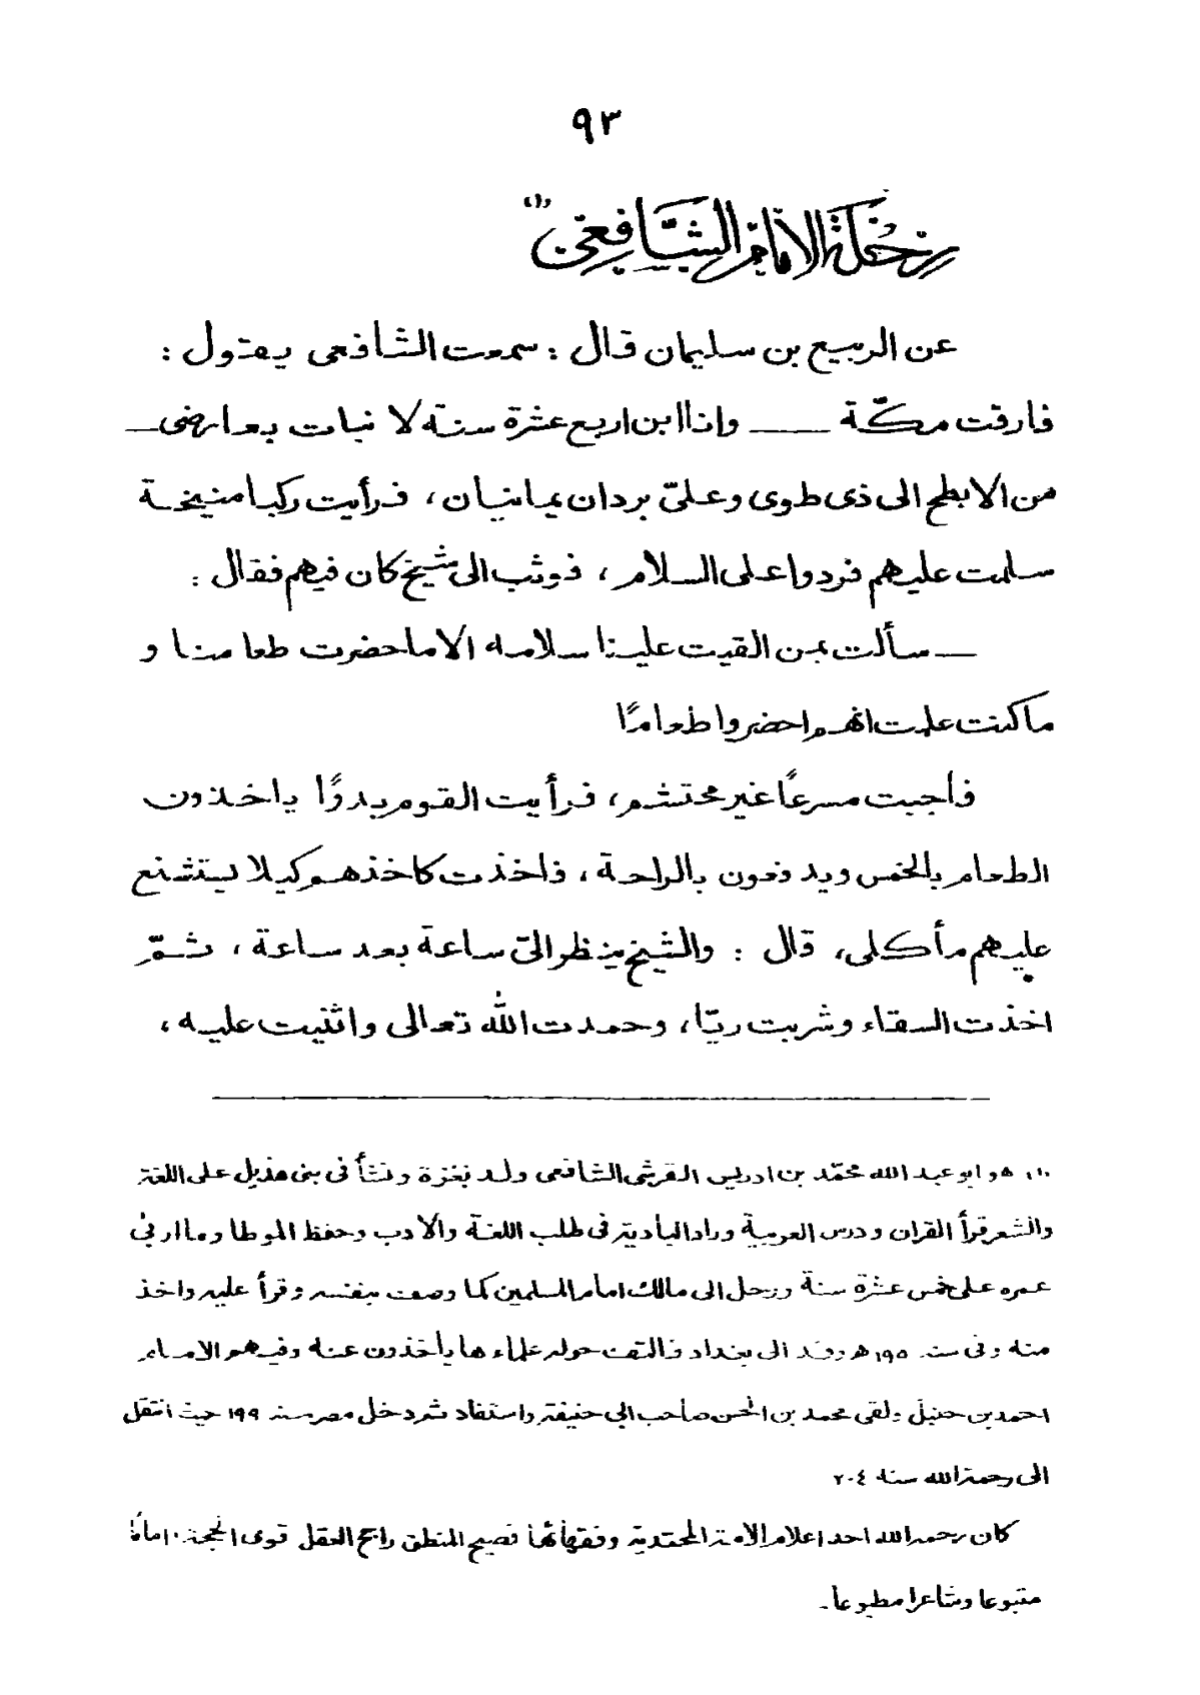 ٩٣
رحلة الإمام الشافعي (١)
عن الربيع بن سليمان قال : سمعت الشافعى يقول :
فارقت مكّة ــــ وانا ابن اربع عشرة سنة لا نبات بعارضى ــ
من الابطح الى ذى طوى وعلىّ بردان يمانيان ، فرأيت ركبا منيخة
سلمت عليهم فردوا على السلام ، فوثب الى شيخ كان فيهم فقال :
ــ سألت بمن القيت علينا سلامه الا ما حضرت طعامنا و
ماكنت علمت انهم احضروا طعامًا
فأجبت مسرعًا غير محتشم ، فرأيت القوم بدوًا ياخذون
الطعام بالخمس ويدفعون بالراحة ، فاخذت كاخذهم كيلا يستشنع
عليهم مأكلى ، قال : والشيخ ينظر الىّ ساعة بعد ساعة ، ثمّ
اخذت السقاء وشربت ريّا ، وحمدت الله تعالى واثنيت عليه ،
(١) هو ابو عبد الله محمّد بن ادريس القرشى الشافعى ولد بغزة ونشأ فى بنى هذيل على اللغة
والشعر قرأ القران ودرس العربية وراد البادية فى طلب اللغة والادب وحفظ الموطا وما اربى
عمره على خمس عشرة سنة ورحل الى مالك امام المسلمين كما وصف بنفسه وقرأ عليه واخذ
منه وفى سنة ١٩٥ هـ وفد الى بغداد فالتف حوله علماء ها يأخذون عنه وفيهم الامام
احمد بن حنبل ولقى محمد بن الحسن صاحب ابي حنيفة واستفاد ثم دخل مصر سنة ١٩٩ حيث انتقل
الى رحمة الله سنة ٢٠٤
كان رحمه الله احد اعلام الامة المحمدية وفقهائها فصيح المنطق راجح العقل قوى الحجة اماما
متبوعا وشاعرا مطبوعا .